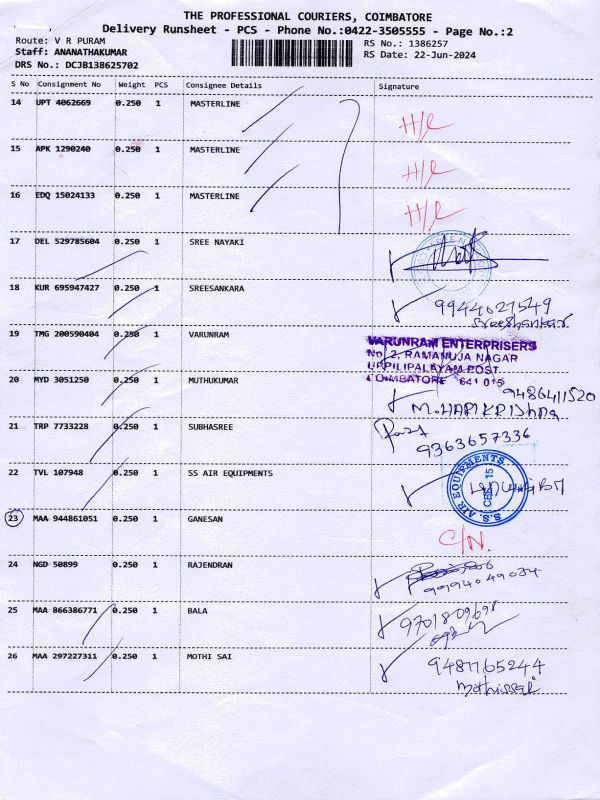 THE PROFESSIONAL COURIERS, COIMBATORE
Delivery Runsheet - PCS - Phone No.:0422-3505555 - Page No.:2
Route: V R PURAM
Staff: ANANATHAKUMAR
DRS No.: DCJB138625702
RS No.: 1386257
RS Date: 22-Jun-2024
S No Consignment No Weight PCS Consignee Details Signature
14 UPT 4062669 0.250 1 MASTERLINE
H/L
15 APK 1290240 0.250 1 MASTERLINE
H/L
16 EDQ 15024133 0.250 1 MASTERLINE
H/L
17 DEL 529785604 0.250 1 SREE NAYAKI
18 KUR 695947427 0.250 1 SREESANKARA
9944027549
Sreeshankar
19 TMG 200590404 0.250 1 VARUNRAM
VARUNRAM ENTERPRISERS
No. 2, RAMANUJA NAGAR
UPPILIPALAYAM POST
COIMBATORE 641 015
20 MYD 3051250 0.250 1 MUTHUKUMAR
9486411520
M.HARI KRISHNA
21 TRP 7733228 0.250 1 SUBHASREE
9363657336
22 TVL 107948 0.250 1 SS AIR EQUIPMENTS
S.S. AIR EQUIPMENTS
CBE - 15
23 MAA 944861051 0.250 1 GANESAN
C/N.
24 NGD 50899 0.250 1 RAJENDRAN
9994049034
25 MAA 866386771 0.250 1 BALA
9701809698
26 MAA 297227311 0.250 1 MOTHI SAI
9487765244